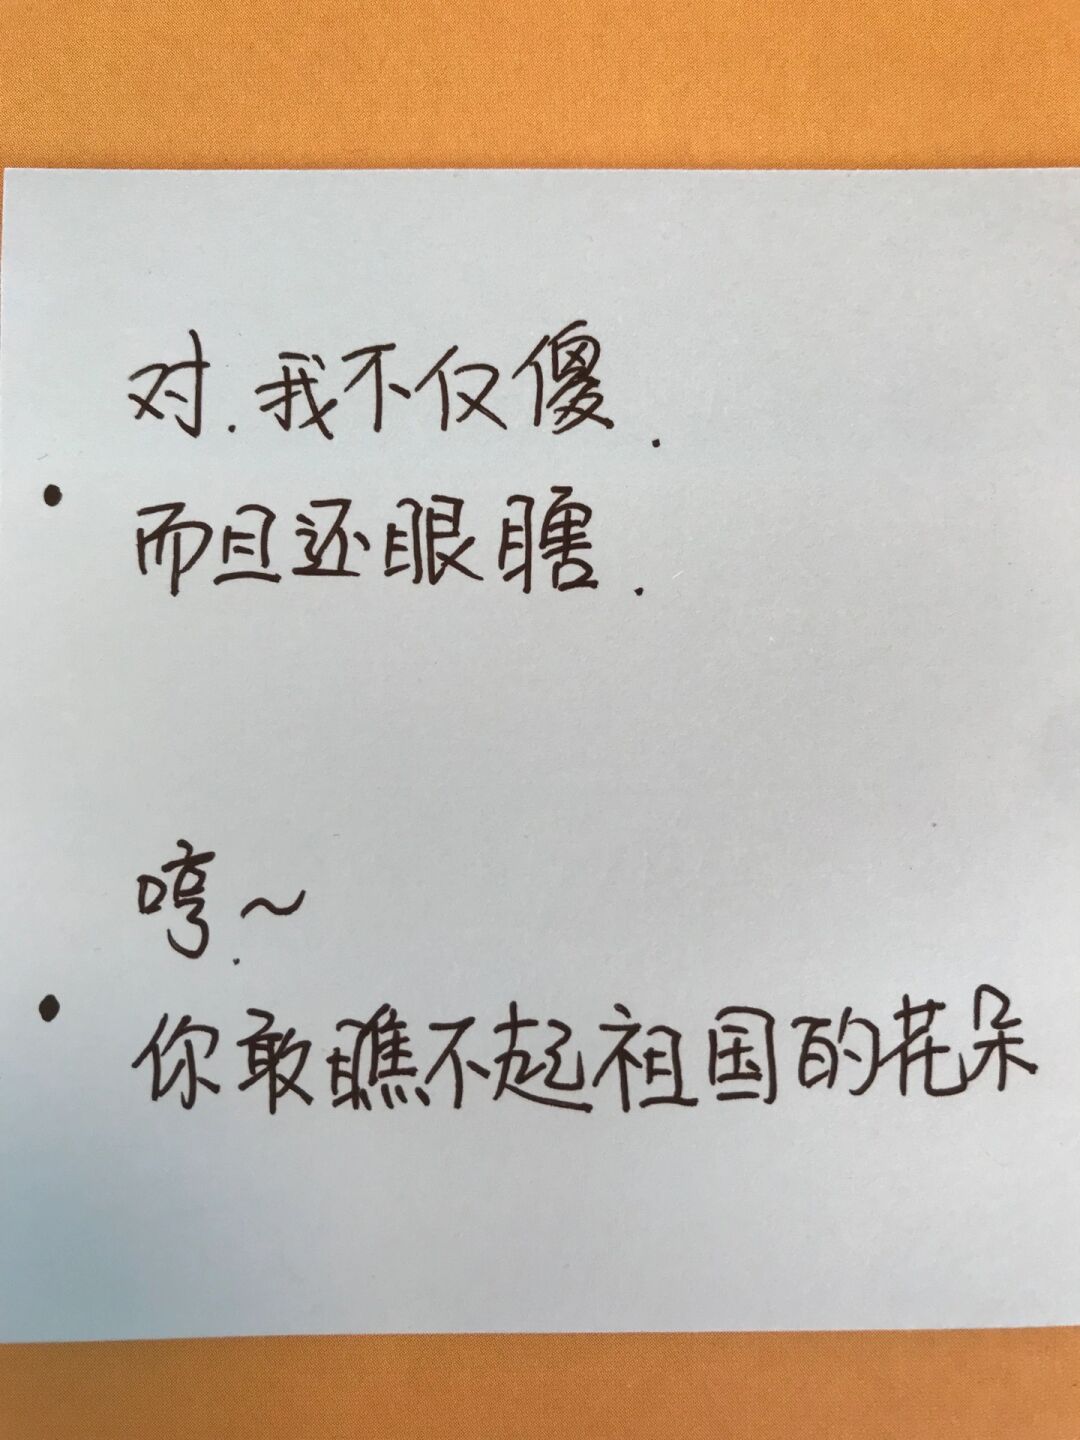 对.我不仅傻.
而且还眼瞎.
哼.~
你敢瞧不起祖国的花朵